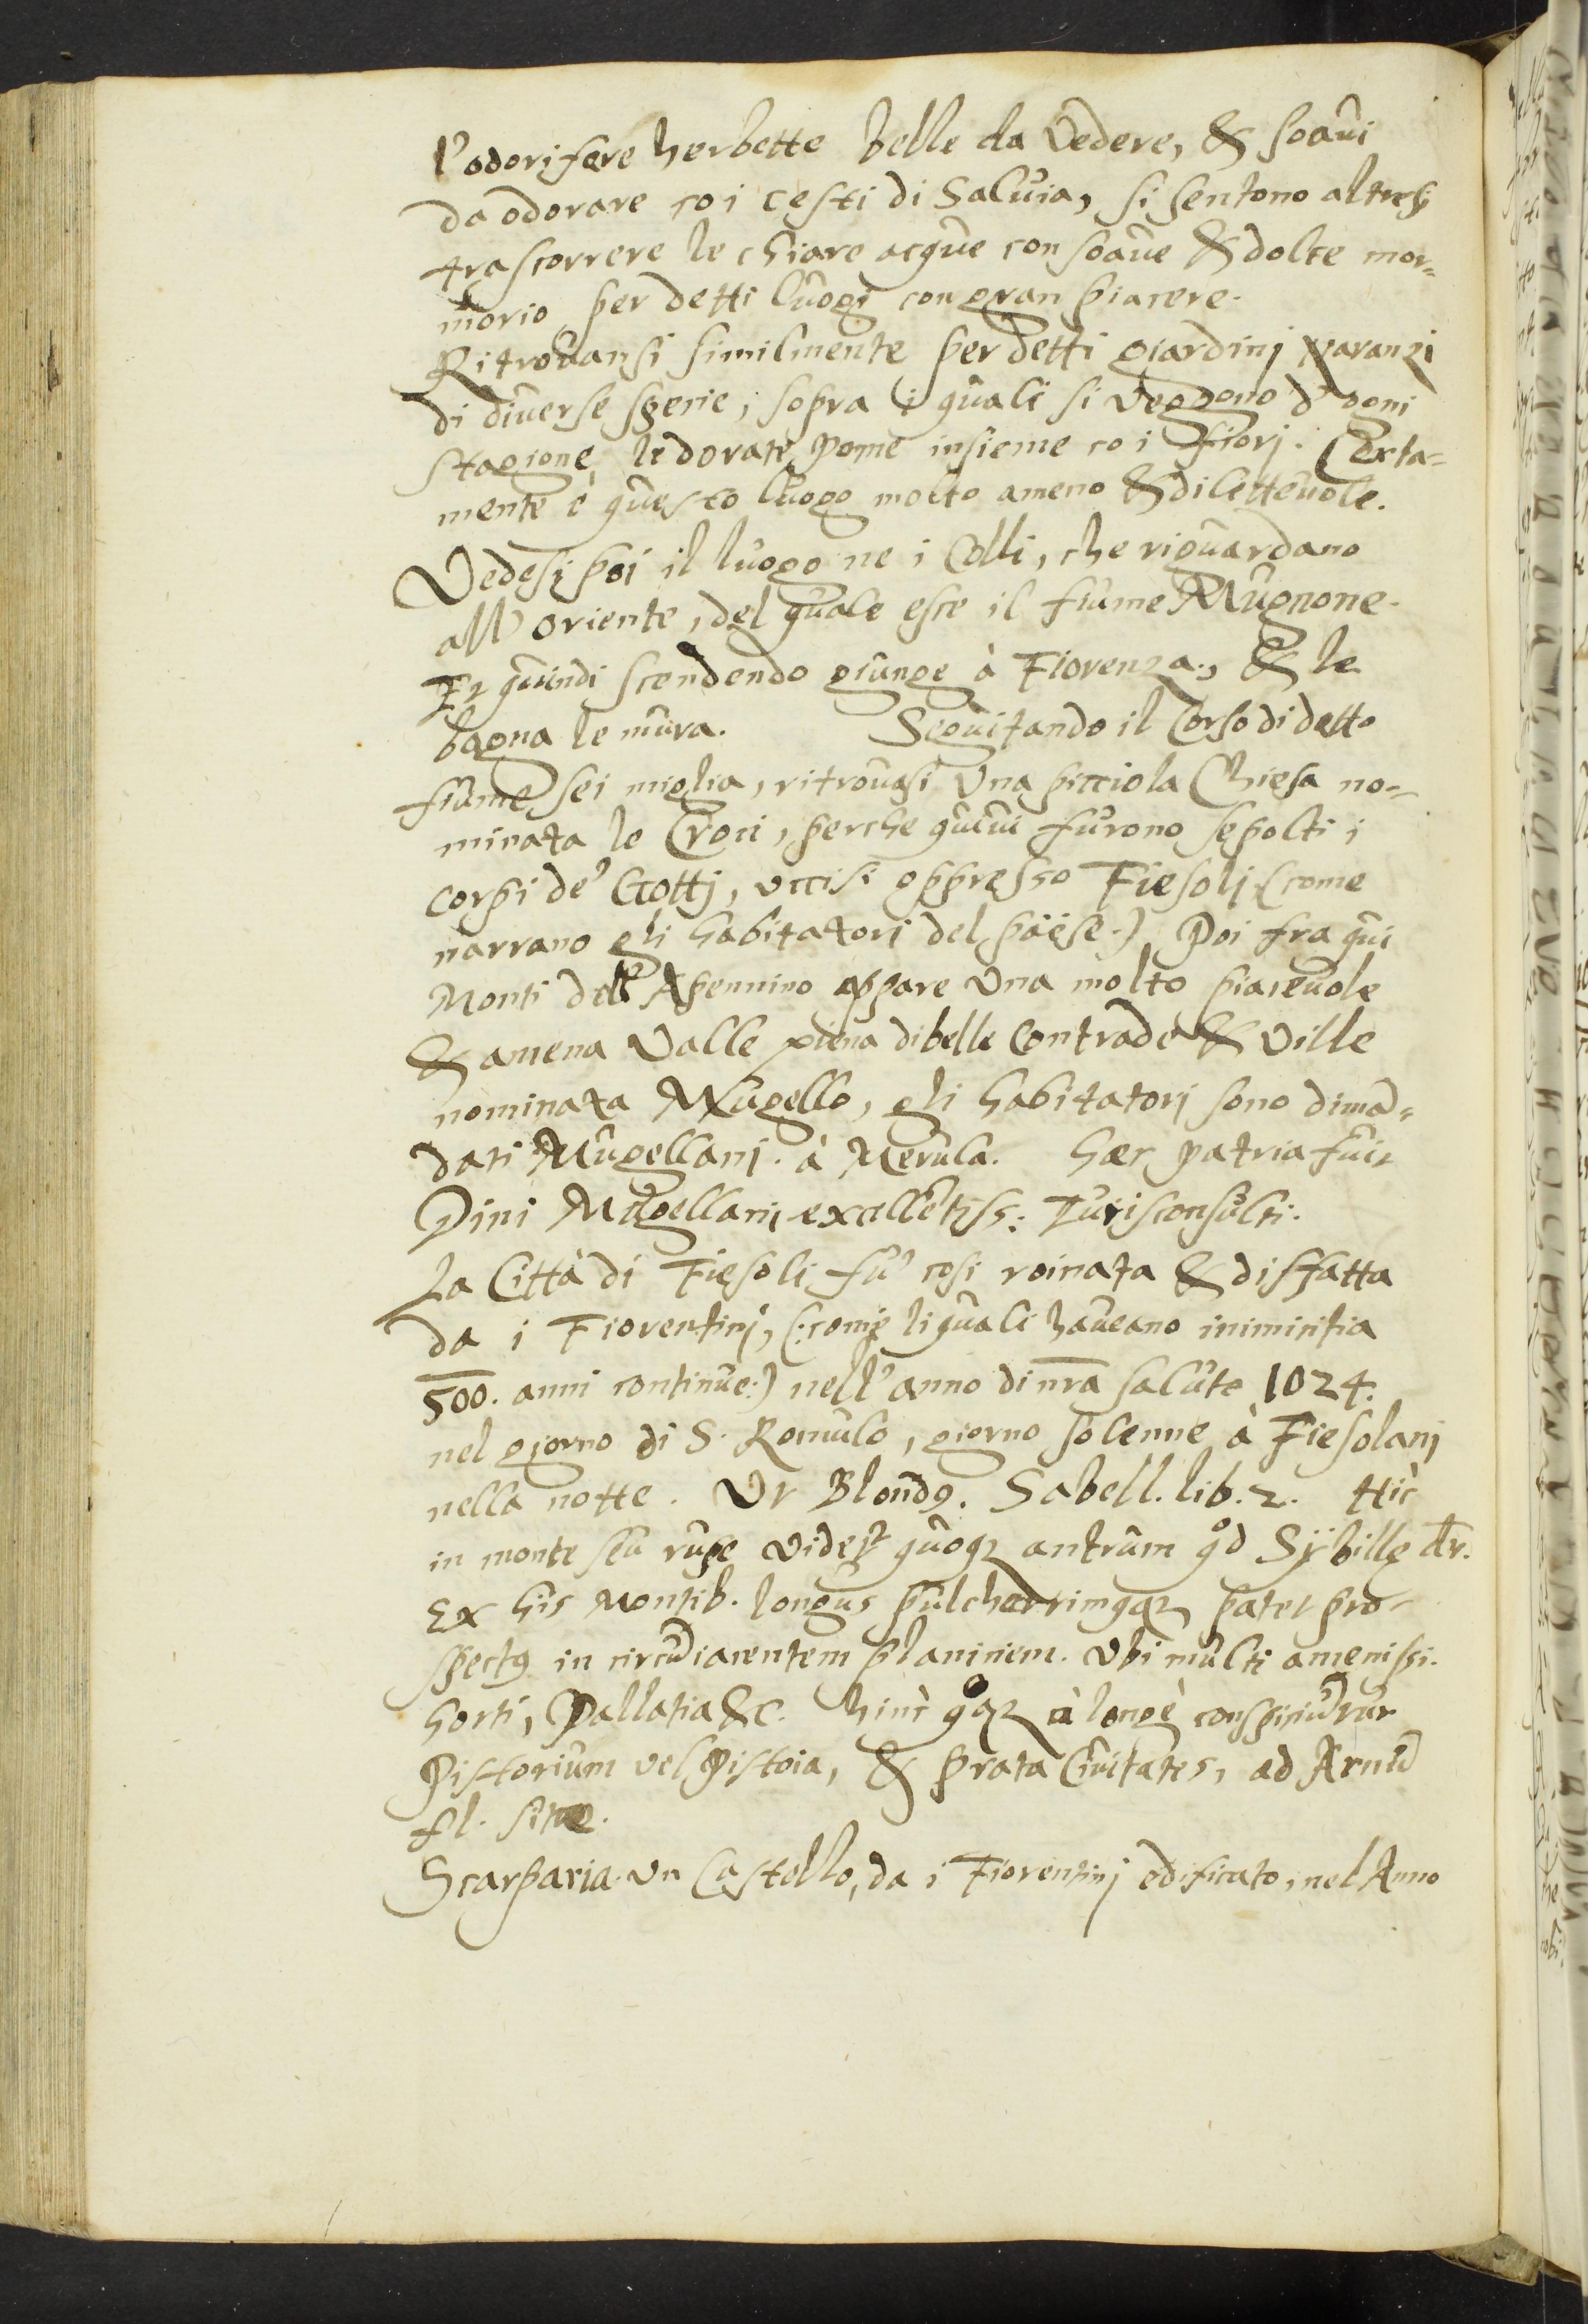 l'odorifere herbette belle da Vedere, & soaui
da odorare co i cesti di Saluia, si sentono altresi
trascorrere le chiare acque con soaue & dolce mor=
morio per detti luogi con gran piacere.
Ritrouansi similmente per detti giardinj naranzi
di diuerse sperie; sopra i quali si veggono d'ogni
stagione le dorate pome insieme co i fiorj. Certa=
mente è questo luogo molto ameno & diletteuole.
Vedesi poi il luogo ne i Colli, che riguardano
all' oriente, del quale esce il fiume Mugnone.
Et quindi scendendo giunge à Fiorenza., & le
bagna le mura. Seguitando il Corso di detto
fiume sei miglia, ritrouasi Vna picciola Chiesa no=
minata le Croci, perche quiui furono sepolti i
corpi de' Gottj, vccisi appresso Fiesoli (come
narrano gli habitatori del päese.) Poi fra qui
Monti dell' Apennino appare Vna molto piaceuole
& amena Valle piena di belle Contrade & Ville
nominata Mugello, gli habitatorj sono dimā=
dati Mugellanj. à Merula. Hæc patria fuit
Dini Mugellani excellētiss: Iurisconsulti.
La Città di Fiesoli fu' cosi roinata & disfatta
da i Fiorentinj, (:come li quali haueano inimicitia
500. anni continue:) nell' anno di nr̄a salute 1024.
nel giorno di S. Romulo, giorno solenne à Fiesolanj
nella notte. Vt Blondꝰ. Sabell. lib. 2. Hic
in monte seu rupe videt̄ quoqꝫ antrum qd̊ Sÿbille dr̄.
Ex his Montib. longus pulcherrimꝰqꝫ patet pro=
spectꝰ in circūiacentem planiciem. Vbi multi amenissi.
horti, Pallatia &c. Hinc qͦqꝫ à longè conspiciūtur
Pistorium vel Pistoia, & Prata Ciuitates, ad Arnū
fl. sitæ.
Scarparia. vn Castello, da i Fiorentinj edificato, nel Anno